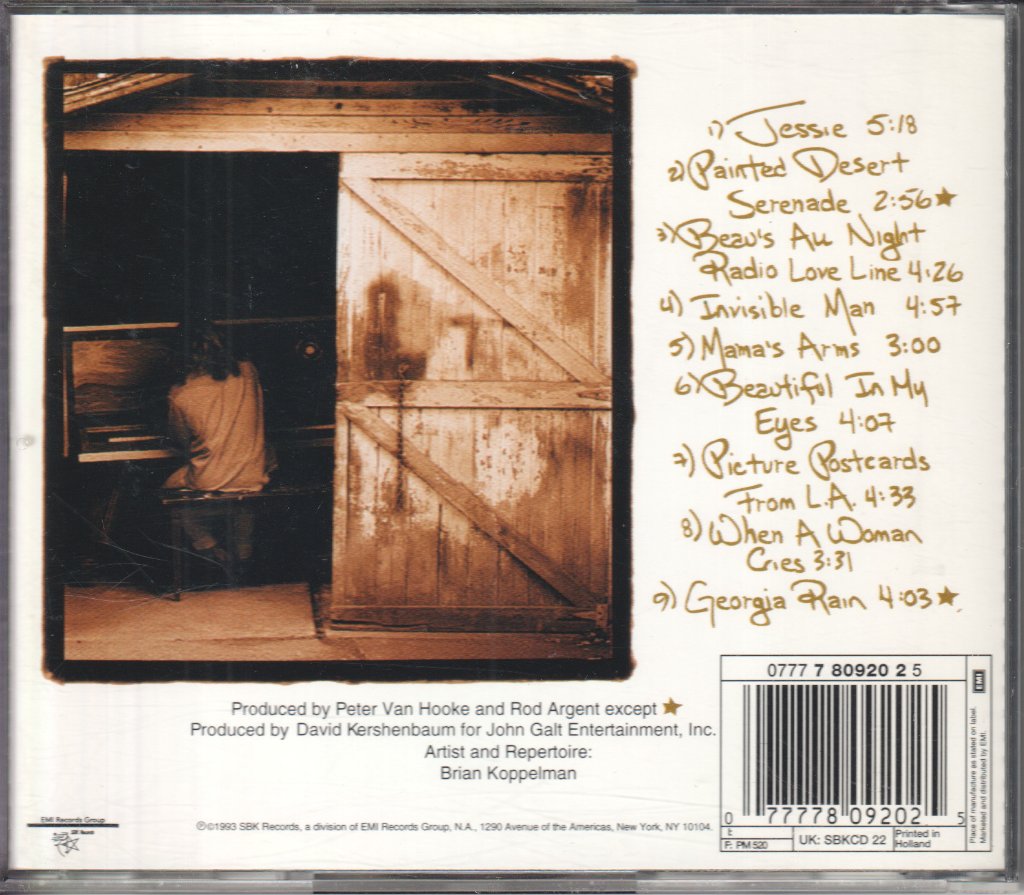 1) Jessie 5:18
2) Painted Desert
Serenade 2:56★
3) Beau's All Night
Radio Love Line 4:26
4) Invisible Man 4:57
5) Mama's Arms 3:00
6) Beautiful In My
Eyes 4:07
7) Picture Postcards
From L.A. 4:33
8) When A Woman
Cries 3:31
9) Georgia Rain 4:03★
Produced by Peter Van Hooke and Rod Argent except ★
Produced by David Kershenbaum for John Galt Entertainment, Inc.
Artist and Repertoire:
Brian Koppelman
EMI Records Group
℗©1993 SBK Records, a division of EMI Records Group, N.A., 1290 Avenue of the Americas, New York, NY 10104.
0777 7 80920 2 5
0 77778 09202 5
F: PM 520
UK: SBKCD 22
Printed in
Holland
EMI
Place of manufacture as stated on label.
Marketed and distributed by EMI.